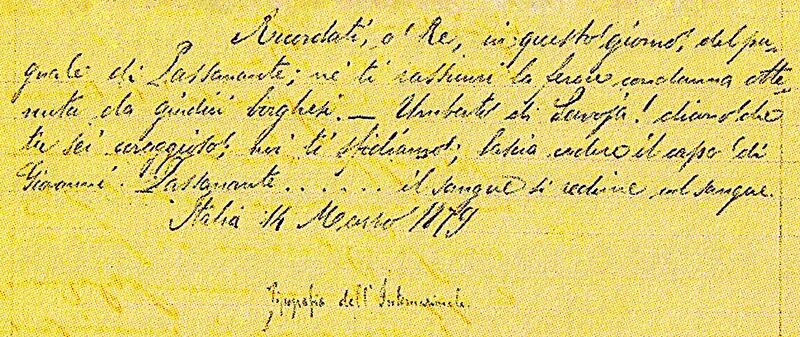 Ricordati, o Re, in questo giorno, del pu-
gnale di Passanante; nè ti rassicuri la feroce condanna otte-
nuta da giudici borghesi. — Umberto di Savoja! dicono che
tu sei coraggioso; noi ti sfidiamo; lascia cadere il capo di
Giovanni Passanante...... il sangue si redime col sangue.
Italia 14 Marzo 1879
Tipografia dell'Internazionale.